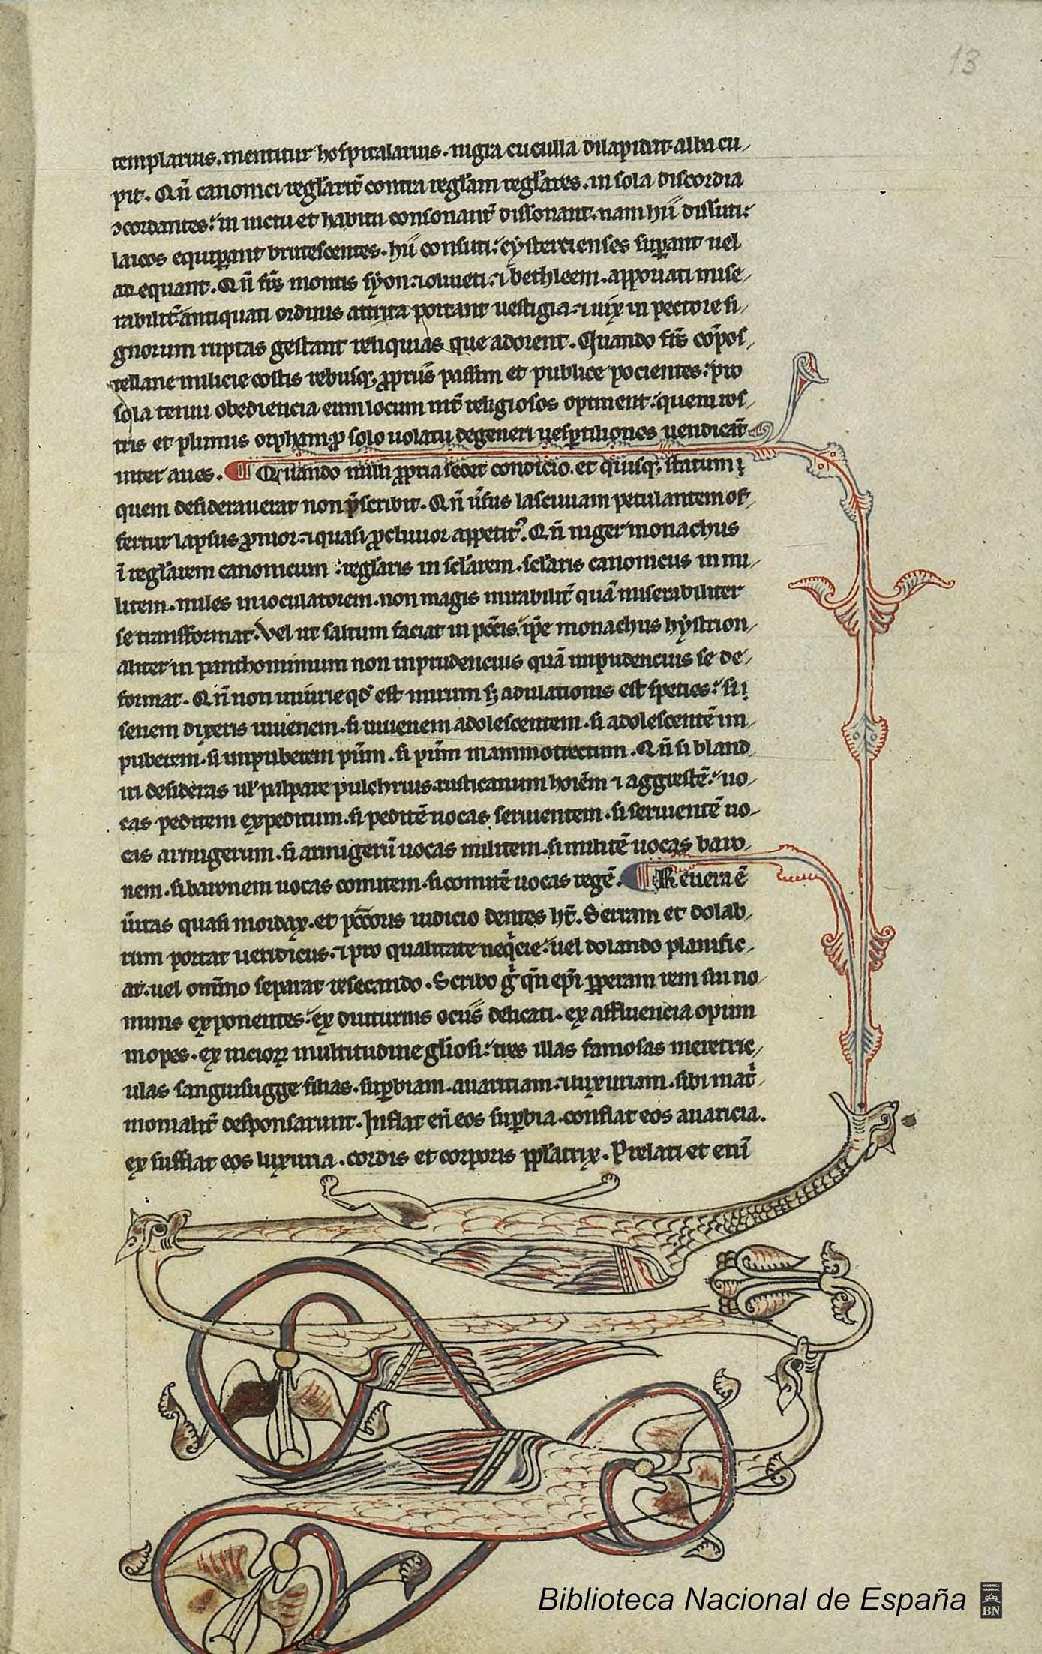 13
templarius. mentitur hospitalarius. nigra cuculla dilapidat. alba cu/
pit. Qn̄ canonici regl̄arit̄ contra regl̄am regl̄ares. in sola discordia
ↄcordantes: in uictu et habitu consonant̄ dissonant. nam hii dissuti:
laicos equiꝑant brutescentes. hii consuti: cystercienses suꝑant uel
adequant. Qn̄ fr̄s montis syon. ⁊ oliueti. ⁊ bethleem. apporiati mise/
rabilit̄. antiquati ordinis attrita portant uestigia. ⁊ uix in pectore si/
gnorum ruptas gestant reliquias que adorent. Quando fr̄s cōpos/
tellane milicie costis rebusqꝫ ꝓpriis passim et publice pocientes: pro
sola tenui obediencia eum locum int̄ religiosos optinent: quem
et plumis orphani ꝑ solo uolatu degeneri uesꝑtiliones uendicāt
inter aues. Quando nulli ꝓpria sedet condicio. et quisqꝫ statum
quem desiderauerat non p̄scribit. Qn̄ usus lasciuiam petulantem of/
fertur lapsus ꝓnior. ⁊ quasi ꝓcliuior appetit᷑. Qn̄ niger monachus
ī regl̄arem canonicum: regl̄aris in scl̄arem. scl̄aris canonicus in mi/
litem. miles in ioculatorem. non magis mirabilit̄ quā miserabiliter
se transformat. Vel ut saltum faciat in ip̄e monachus hystrion/
aliter in panthomimum non inprudencius quā impudencius se de/
format. Qn̄ non iniurie qd̄ est mirum sꝫ adulationis est species: si
senem dixeris iuuenem. si iuuenem adolescentem. si adolescentē im/
puberem. si impuberem puum. si puum mammotrectum. Qn̄ si bland/
iri desideras ul̄ palpare pulchrius. rusticanum hoiēm ⁊ aggrestē: uo/
cas peditem expeditum. si peditē uocas seruientem. si seruientē uo/
cas armigerum. si armigerū uocas militem. si militē uocas baro/
nem. si baronem uocas comitem. si comitē uocas regē. Reuera ē
ūitas quasi mordax. et pctōris iudicio dentes ht̄. Serram et dolab/
rum portat ueridicus. ⁊ pro qualitate neqcie: uel dolando planific/
at. uel omīno separat resecando. Scribo gͥ qn̄ ep̄i ꝑperam rem sui no
minis exponentes: ex diuturnis ociis delicati. ex affluencia opum
inopes. ex uicioꝝ multitudine gl̄iosi: tres illas famosas meretric/
ulas sanguisugge filias. suꝑbiam. auaritiam. luxuriam. sibi mat̄/
monialit̄ desponsarunt. Inflat en̄ eos suꝑbia. conflat eos auaricia.
exsufflat eos luxuria. cordis et corporis Prelati et eni
Biblioteca Nacional de España
BN